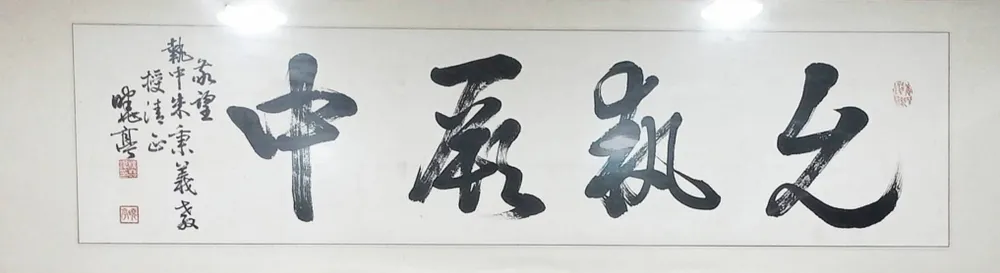 允執厥中
敬望
執中朱秉義教
授清正